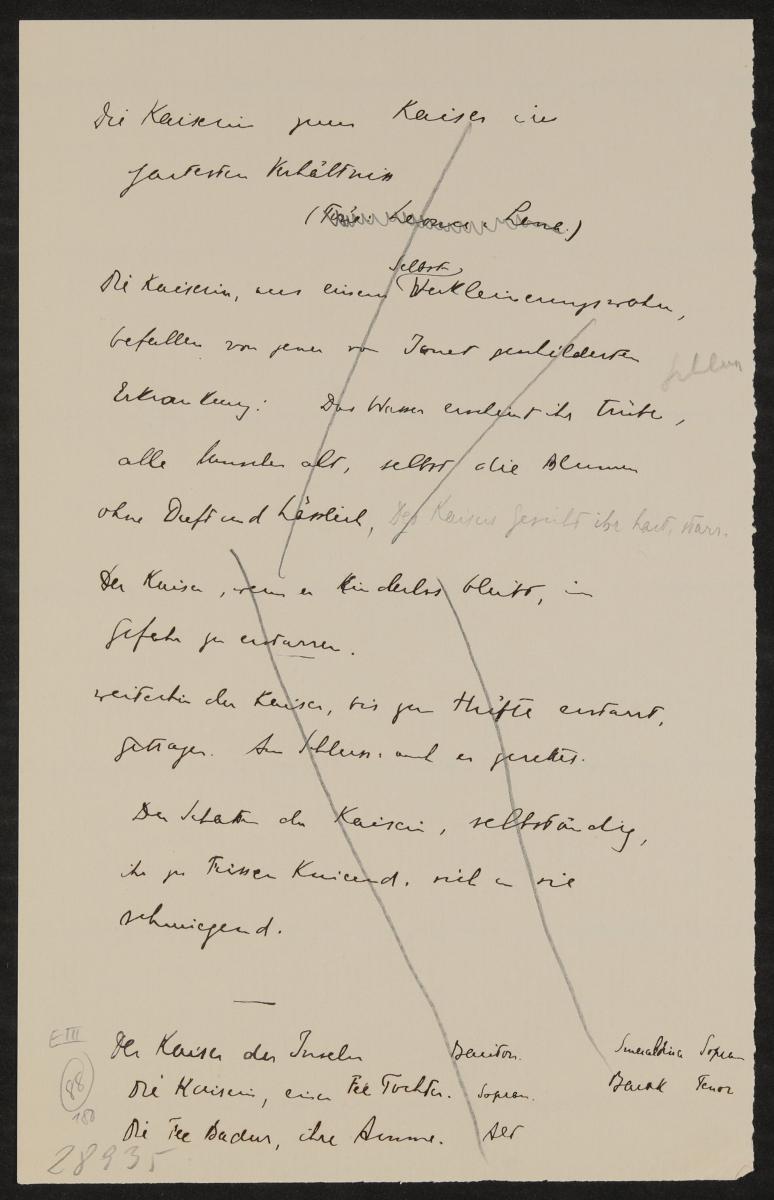 Die Kaiserin zum Kaiser im
zartesten Verhältniss
Leonce Lena.)
Selbst
Die Kaiserin, aus einem Verkleinerungswahn,
befallen von jener von Janet geschilderten
Erkrankung: Das Wasser erscheint ihr trübe,
alle Menschen alt, selbst die Blumen
ohne Duft und hässlich, Des Kaisers Gesicht ihr hart, starr.
Der Kaiser, wenn er kinderlos bleibt, in
Gefahr zu erstarren.
weiterhin der Kaiser, bis zur Hüfte erstarrt,
getragen. Am Schluss: wird er gerettet.
Der Schatten der Kaiserin, selbständig,
ihr zu Füssen kniend, sich an sie
schmiegend.
Der Kaiser der Inseln Bariton. Smeraldina Sopran
Die Kaiserin, einer Fee Tochter. Sopran. Barak Tenor
Die Fee Badur, ihre Amme. Alt
E III
88
180
28935